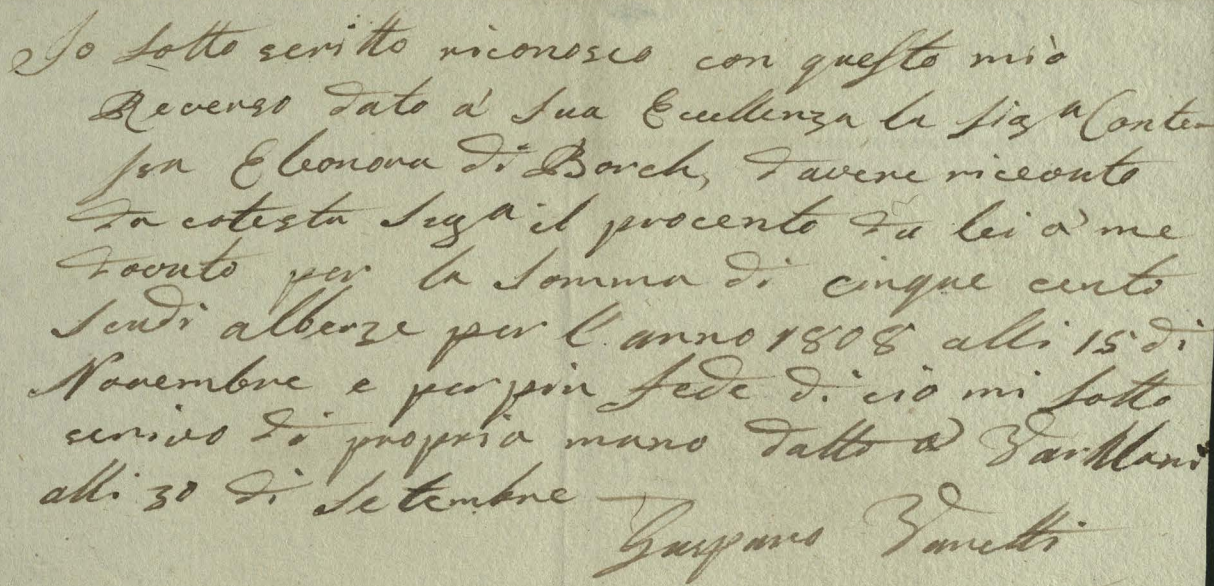 Io sotto scritto riconosco con questo mio
Reverso dato à Sua Eccellenza la Sigª Contes-
sa Eleonora di Borch, d'avere riceouto
da cotesta Sigª il procento da lei à me
dovuto per la somma di cinque cento
Scudi alberze per l'anno 1808 alli 15 di
Novembre e per piu fede di ciò mi sotto
scrivo di propria mano datto à
alli 30 di Setembre
Gasparo Vanetti